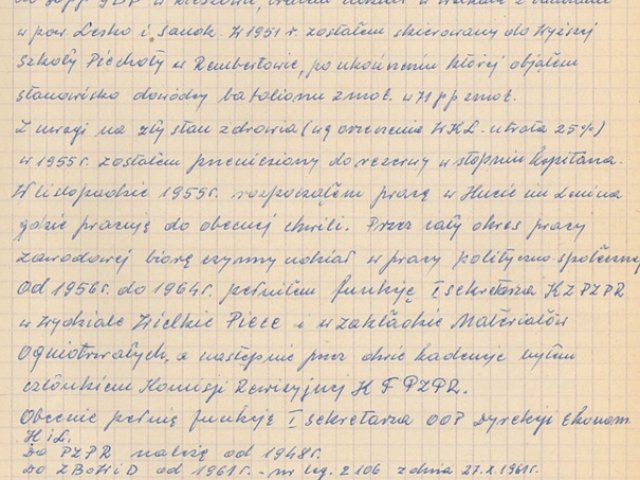 w pow Lesko i Sanok. W 1951 r. zostałem skierowany do Wyższej
Szkoły Piechoty w Rembertowie, po ukończeniu której objąłem
stanowisko dowódcy batalionu zmot. w 71 pp zmot.
Z uwagi na zły stan zdrowia (wg orzeczenia WKL - utrata 25%)
w 1955 r. zostałem przeniesiony do rezerwy w stopniu kapitana.
W listopadzie 1955 r. rozpocząłem pracę w Hucie im Lenina
gdzie pracuję do obecnej chwili. Przez cały okres pracy
zawodowej biorę czynny udział w pracy polityczno-społecznej
Od 1956 r. do 1964 r. pełniłem funkcję I sekretarza KZ PZPR
w Wydziale Wielkie Piece i w Zakładzie Materiałów
Ogniotrwałych, a następnie przez dwie kadencje byłem
członkiem Komisji Rewizyjnej KF PZPR.
Obecnie pełnię funkcję I sekretarza OOP Dyrekcji Ekonom
HiL.
Do PZPR należę od 1948 r.
Do ZBoWiD od 1961 r. - nr leg. 2106 z dnia 27.X.1961 r.